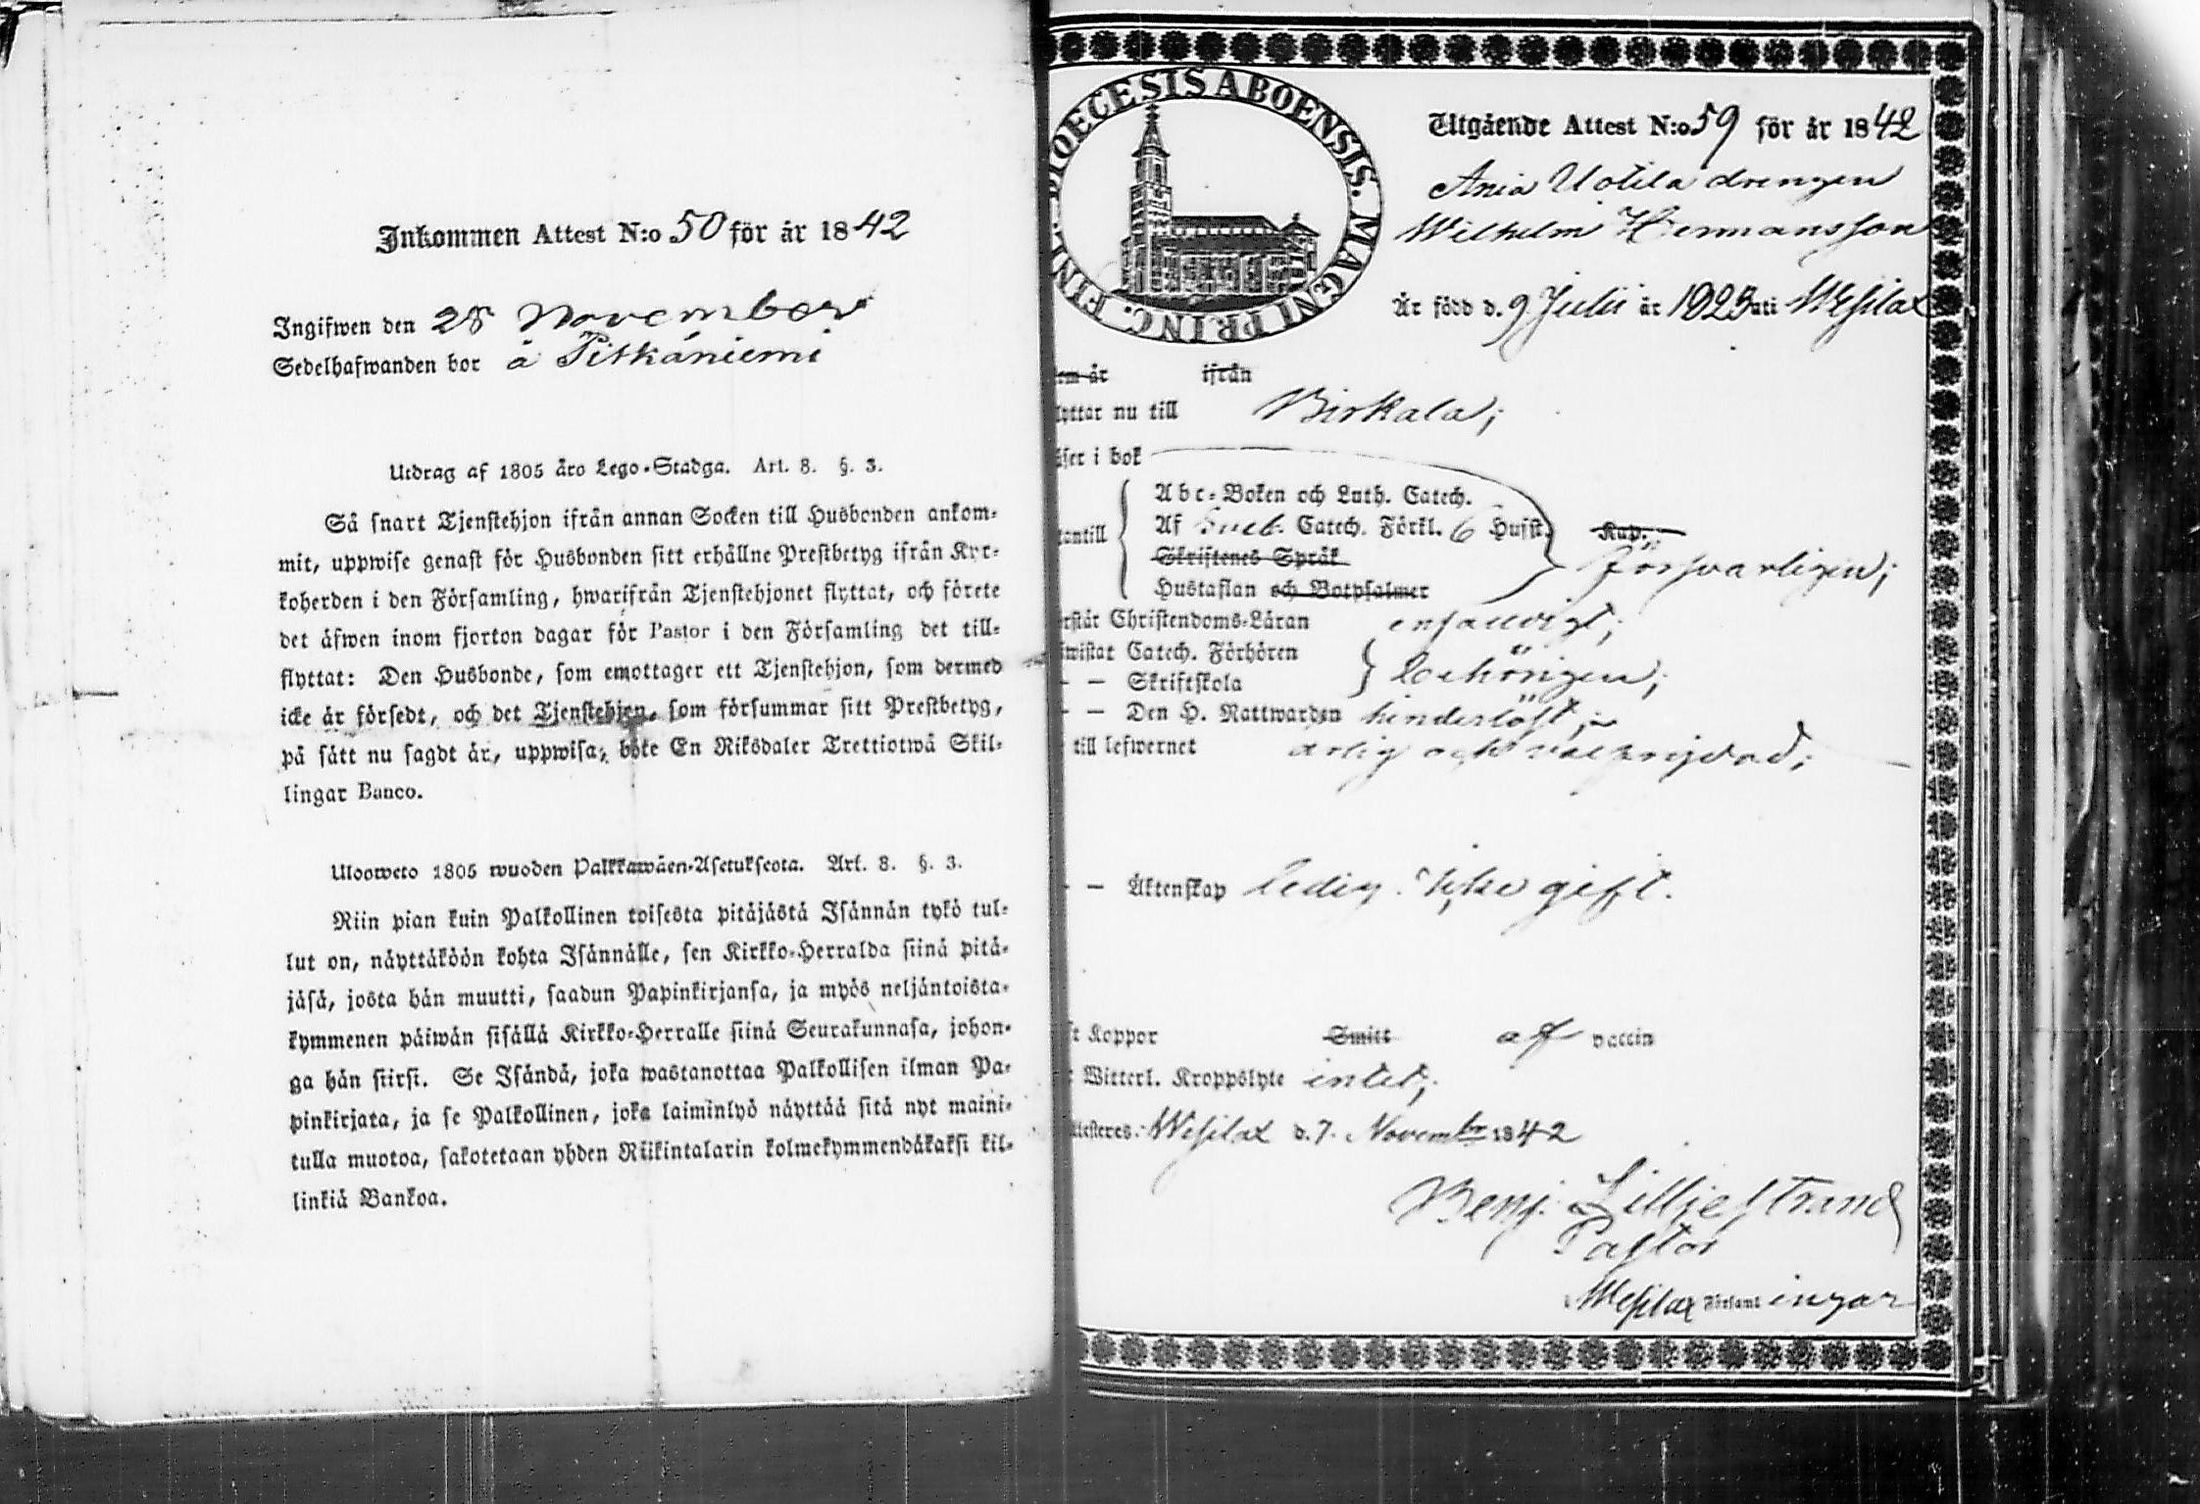 Inkommen Attest N:o 50 för år 1842
Ingifwen den 28 November
Sedelhafwanden bor å Pitkäniemi
Utdrag af 1805 års Lego-Stadga. Art. 8. §. 3.
Så snart Tjenstehjon ifrån annan Socken till Husbonden ankom-
mit, uppwise genast för Husbonden sitt erhållne Prestbetyg ifrån Kyr-
koherden i den Församling, hwarifrån Tjenstehjonet flyttat, och förete
det äfwen inom fjorton dagar för Pastor i den Församling det till-
flyttat: Den Husbonde, som emottager ett Tjenstehjon, som dermed
icke är försedt, och det Tjenstehjon, som försummar sitt Prestbetyg,
på sätt nu sagdt är, uppwisa, böte En Riksdaler Trettiotwå Skil-
lingar Banco.
Uloosweto 1805 wuoden Palkkawäen-Asetuksesta. Art. 8. §. 3.
Niin pian kuin Palkollinen toisesta pitäjästä Isännän tykö tul-
lut on, näyttäköön kohta Isännälle, sen Kirkko-Herralda siinä pitä-
jäsä, josta hän muutti, saadun Papinkirjansa, ja myös neljäntoista-
kymmenen päiwän sisällä Kirkko-Herralle siinä Seurakunnasa, johon-
ga hän siirsi. Se Isändä, joka wastanottaa Palkollisen ilman Pa-
pinkirjata, ja se Palkollinen, joka laiminlyö näyttää sitä nyt maini-
tulla muotoa, sakotetaan yhden Riikintalarin kolmekymmendäkaksi kil-
linkiä Bankoa.
DIOECESIS ABOENSIS. MAGNI PRINC. FINL.
Utgående Attest N:o 59 för år 1842
Ania Uotila drengen
Wilhelm Hermansson
Är född d. 9 Julii år 1825 uti Wesilax
om år ifrån
lyttar nu till Birkala;
äser i bok
Abc-Boken och Luth. Catech.
antill Af Sveb. Catech. Förkl. 6 Hufst. Kap.
Skriftenes Språk försvarligen;
Hustaflan och Botpsalmer
rstår Christendoms-Läran enfaldigt;
iwistat Catech. Förhören
– – Skriftskola behörigen;
– – Den H. Nattwarden hinderlöst;
till lefwernet ärlig och välfrejdad;
– – Äktenskap ledig. Icke gift.
t Koppor Smitt af vaccin
Witterl. Kroppslyte intet;
ttesteres. Wesilax d. 7. Novembr 1842
Benj. Lilljestrand
Pastor
i Wesilax Församl ingar